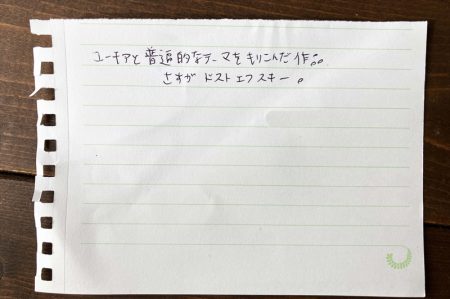 ユーモアと普遍的なテーマをもりこんだ作品。
さすが ドストエフスキー。